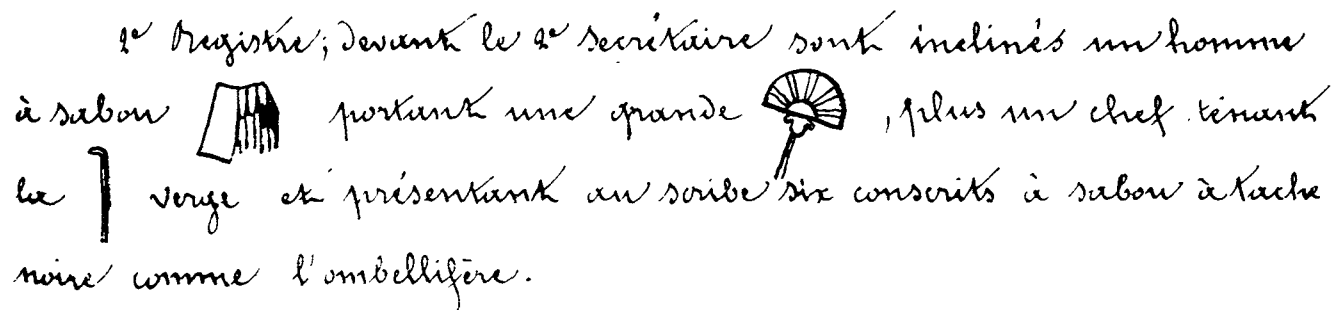 2e Registre; devant le 2e secrétaire sont inclinés un homme
à sabou portant une grande , plus un chef tenant
la verge et présentant au scribe six conscrits à sabou à tache
noire comme l'ombellifère.